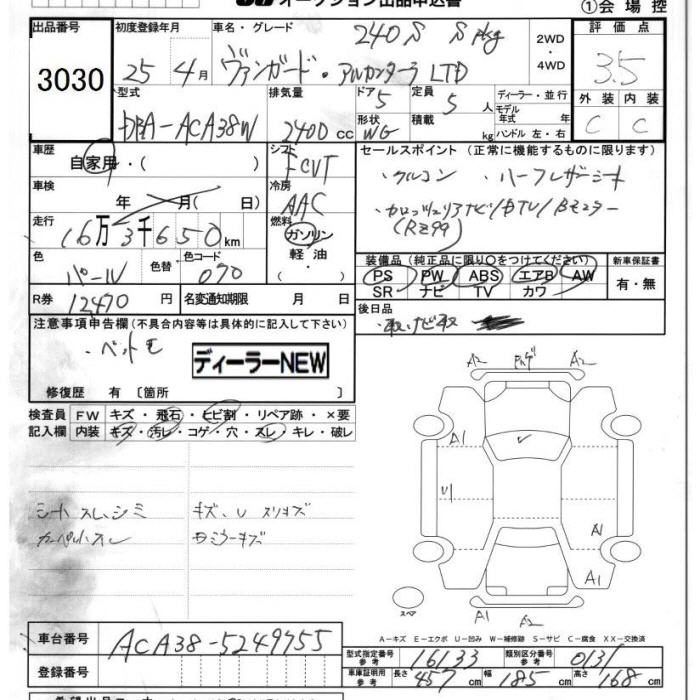 オークション出品申込書
①会場控
出品番号 初度登録年月 車名・グレード 240S S pkg 2WD ・4WD 評価点
3030 25年4月 ヴァンガード・アルカンターラ LTD 3.5
型式 排気量 ドア 5 定員 5人 ディーラー・並行 外装 内装
DBA-ACA38W 2400cc 形状 WG 積載 kg モデル年式 年 ハンドル 左・右 C C
車歴 自家用・( ) シフト FCVT セールスポイント (正常に機能するものに限ります)
車検 年 月( 日) 冷房 AAC ・クルコン ・ハーフレザーシート
走行 16万3千650km 燃料 ガソリン・軽油・( ) ・カロッツェリアナビ/DTV/Bモニター
(RZ99)
色 パール 色替 色コード 070 装備品 (純正品に限り○をつけてください) 新車保証書
PS PW ABS エアB AW 有・無
R券 12470円 名変通知期限 月 日 SR ナビ TV カワ
注意事項申告欄 (不具合内容等は具体的に記入して下さい) 後日品
・取、ナビ取
ディーラーNEW
修復歴 有 〔箇所 〕
検査員記入欄 FW キズ・飛石・ヒビ割・リペア跡・×要
内装 キズ・汚レ・コゲ・穴・スレ・キレ・破レ
シートスレ、シミ キズ、U スリキズ
カーペットスレ
A2 A2
A1 U1 A1 A1
A1 A2
スペア
A−キズ E−エクボ U−凹み W−補修跡 S−サビ C−腐食 XX−交換済
車台番号 ACA38-5249755
型式指定番号 参考 16133 類別区分番号 参考 0131
登録番号 車庫証明用 参考 長さ 457 幅 185cm 高さ 168cm